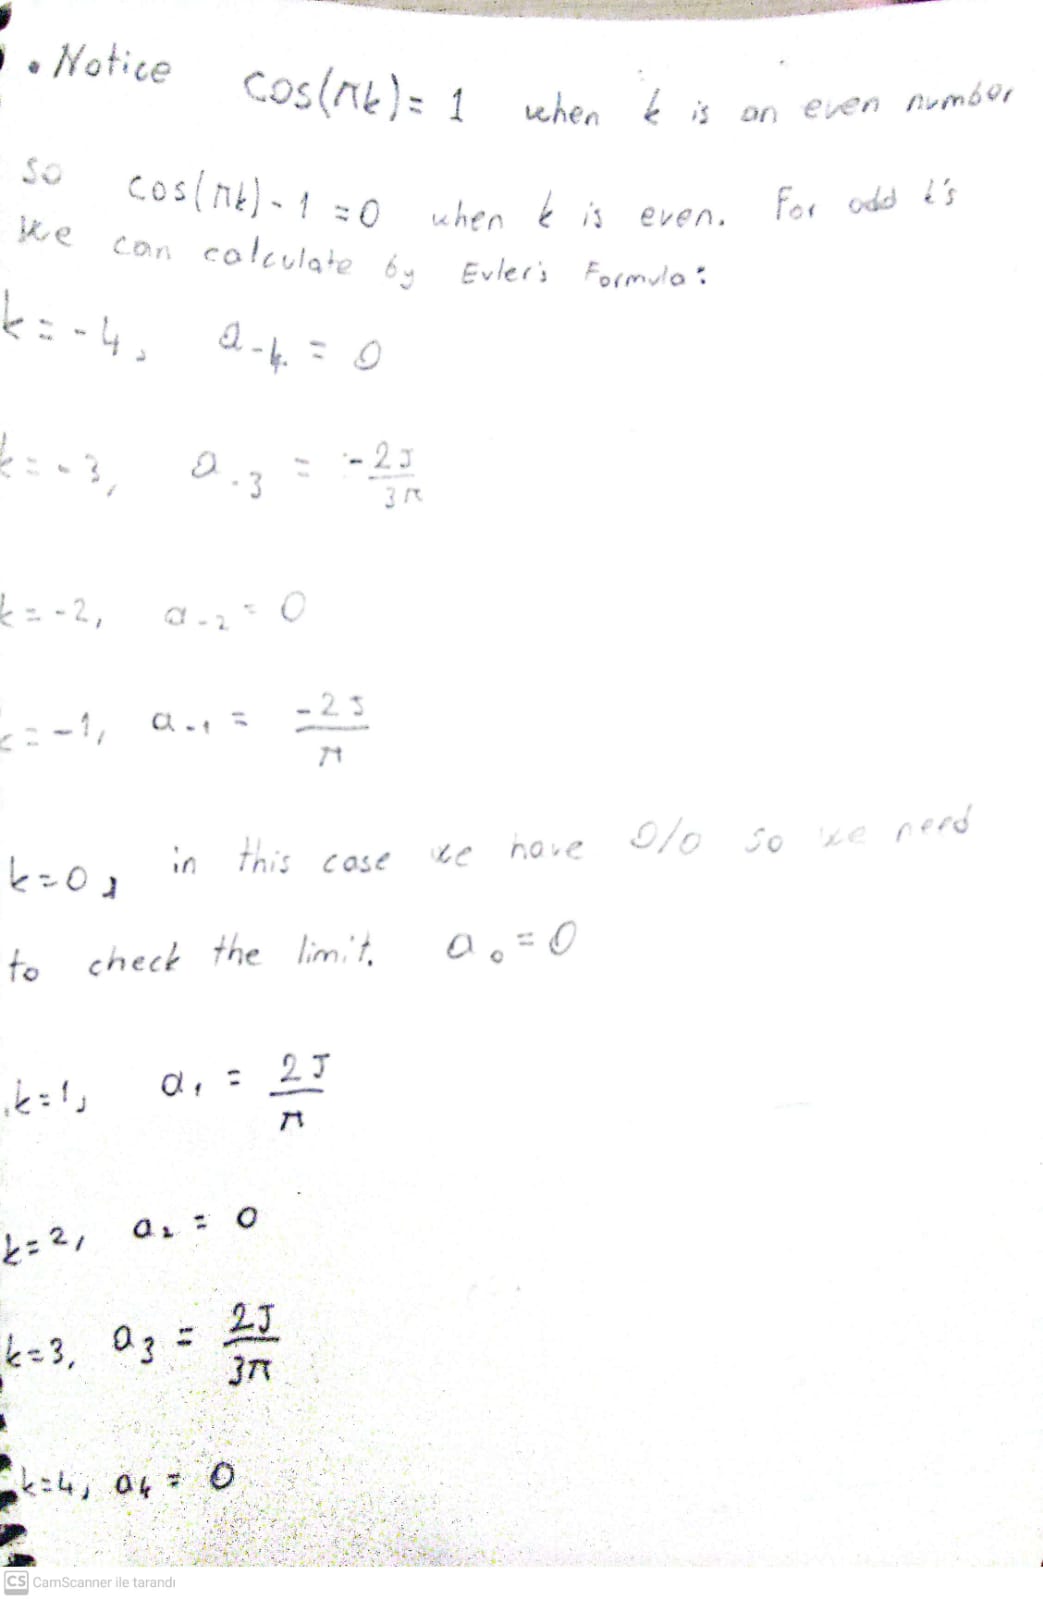 • Notice cos(πk) = 1 when k is an even number
so cos(πk) - 1 = 0 when k is even. For odd k's
we can calculate by Euler's Formula:
k = -4, a-4 = 0
k = -3, a-3 = -2J/3π
k = -2, a-2 = 0
k = -1, a-1 = -2J/π
k = 0, in this case we have 0/0 so we need
to check the limit. a0 = 0
k = 1, a1 = 2J/π
k = 2, a2 = 0
k = 3, a3 = 2J/3π
k = 4, a4 = 0
CS CamScanner ile tarandı